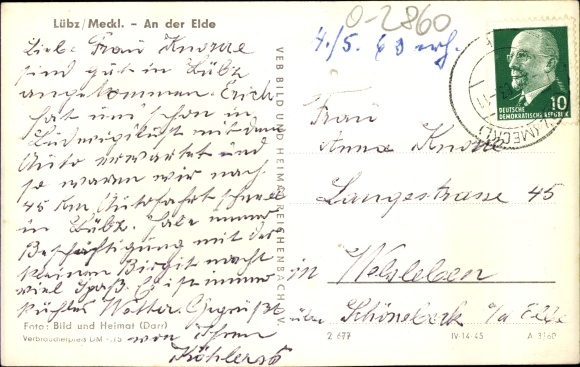 Lübz/Meckl. – An der Elde
O-2860
4./5. 63 erh.
Liebe Frau Knorre
sind gut in Lübz
angekommen. Erich
hat uns schon in
Ludwigslust mit dem
Auto erwartet und
so waren wir nach
45 km Autofahrt schnell
in Lübz. Die
Beschäftigung mit der
kleinen Birgit macht
viel Spaß. Es ist immer
kühles Wetter. Gegrüßt
von Ihren
Köhlers
Foto: Bild und Heimat (Darr)
Verbraucherpreis DM -.15
VEB BILD UND HEIMAT REICHENBACH I. V.
10
DEUTSCHE
DEMOKRATISCHE REPUBLIK
(MECKL)
Frau
Anna Knorre
Langestrasse 45
in Welsleben
über Schönebeck a/d Elbe
2 677
IV-14-45
A 3/60